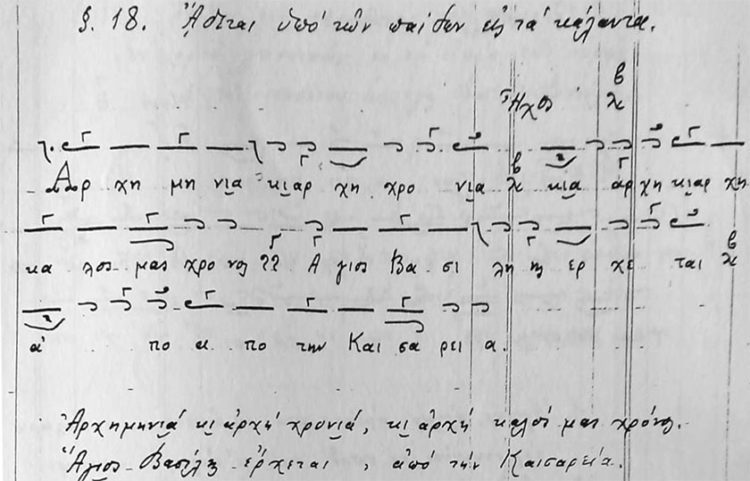 §. 18. Ἄδεται ὑπό τῶν παίδων εἰς τά κάλαντα.
Ἦχος
Αρ χη μη νια κιαρ χη χρο νια κια άρ χη κιαρ χη
κα λος μας χρο νος ?? Α γιος Βα σι λη ης ερ χε ται
α' πο α πο την Και σα ρει α.
Ἀρχημηνιά κι ἀρχή χρονιά, κι ἀρχή καλός μας χρόνος.
Ἅγιος Βασίλης ἔρχεται, ἀπό τήν Καισαρεία.